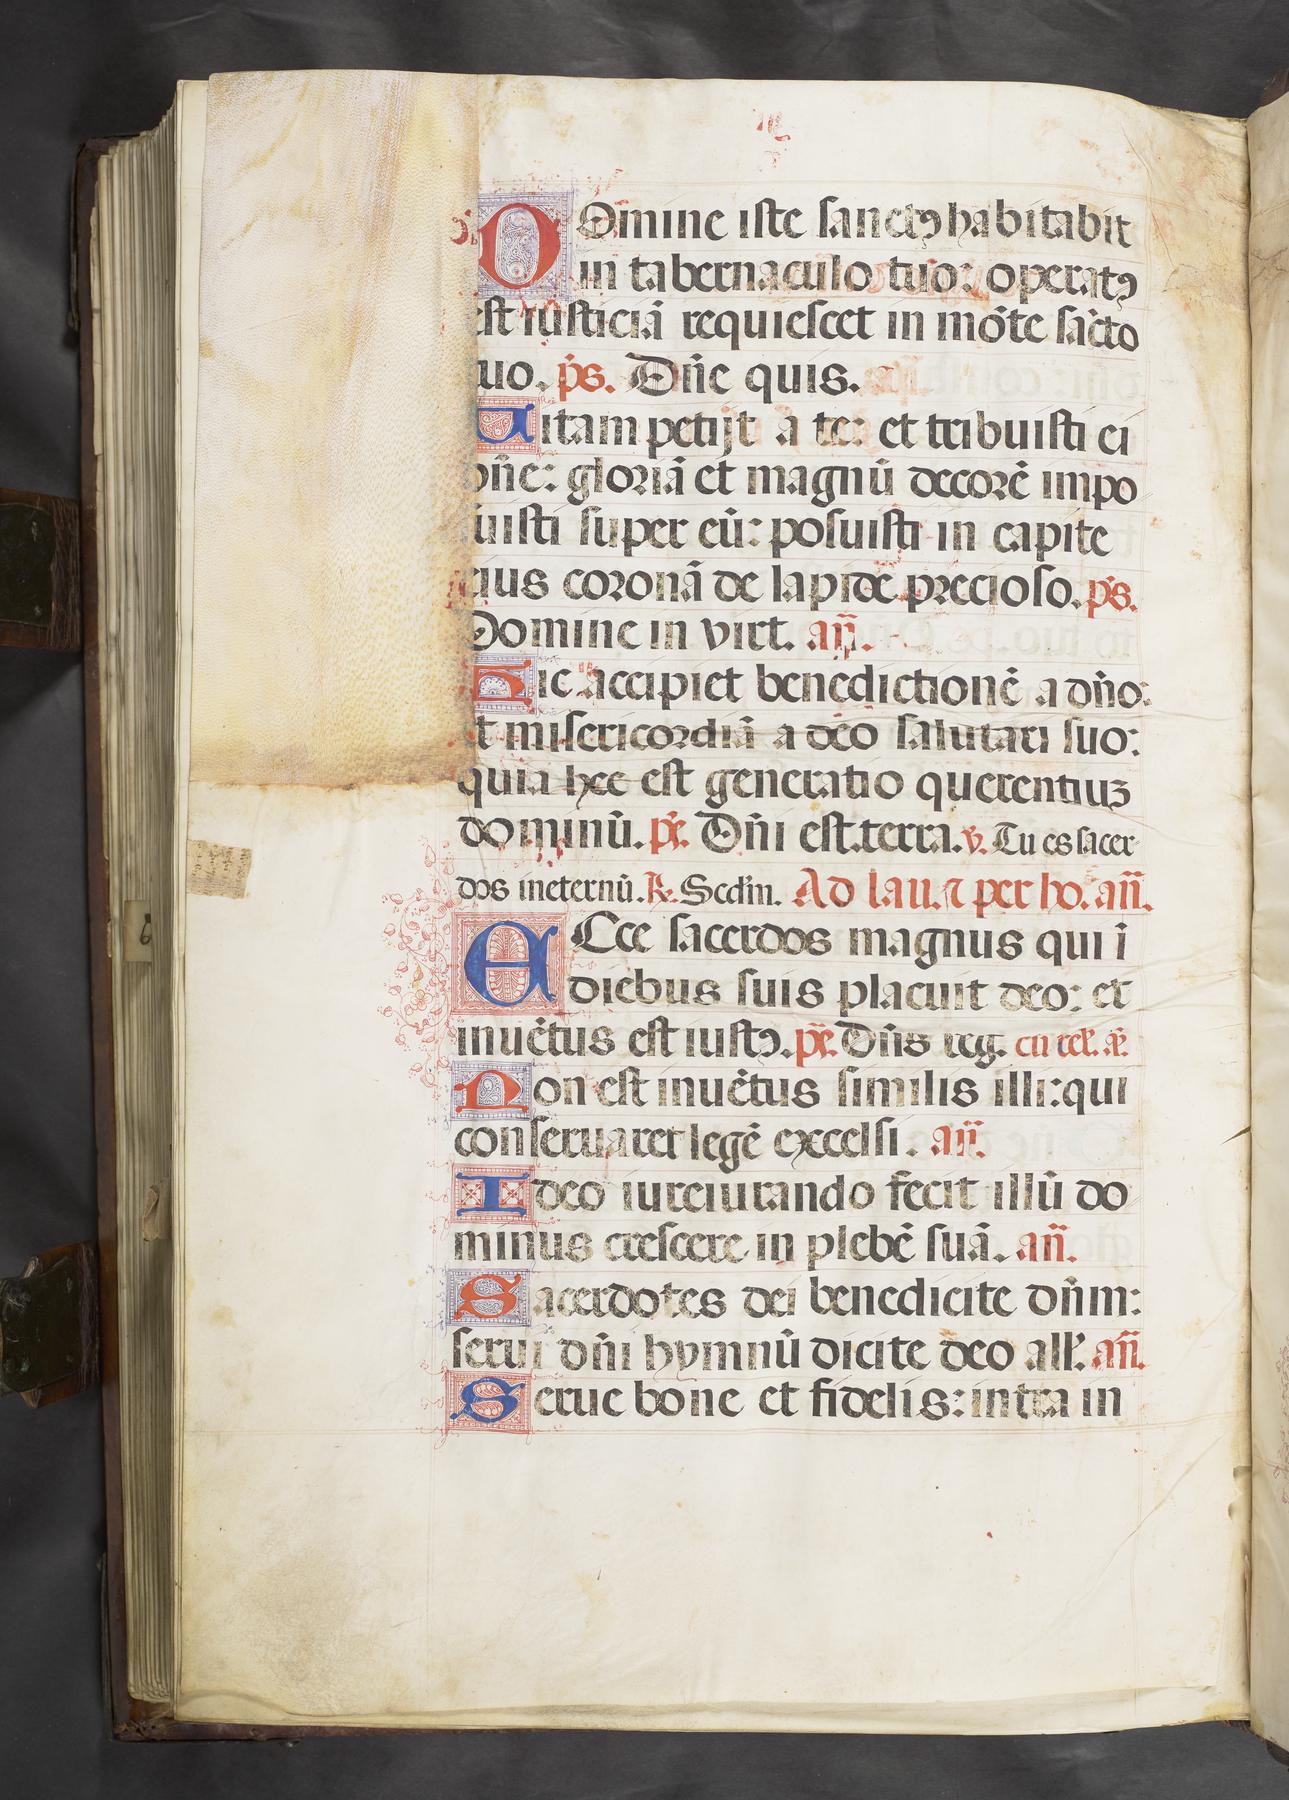 DOmine iste sanctꝰ habitabit
in tabernaculo tuo: operatꝰ
est iusticiā requiescet in mōte sācto
tuo. p̄s. Dn̄e quis.
Uitam petijt a te: et tribuisti ei
dn̄e: gloriā et magnū decorē impo
suisti super eū: posuisti in capite
eius coronā de lapide precioso. p̄s.
Domine in virt. an̄.
Hic accipiet benedictionē a dn̄o:
et misericordiā a deo salutari suo:
quia hec est generatio querentiuꝫ
dominū. p̄s. Dn̄i est terra. v. Tu es sacer
dos ineternū. ℟. Scd̄m. Ad lau. ⁊ per ho. an̄.
ECce sacerdos magnus qui ī
diebus suis placuit deo: et
inuētus est iustꝰ. p̄s. Dn̄s reg. cū rel. p̄s.
Non est inuētus similis illi: qui
conseruaret legē excelsi. an̄.
Ideo iureiurando fecit illū do
minus crescere in plebē suā. an̄.
Sacerdotes dei benedicite dn̄m:
serui dn̄i hymnū dicite deo all'. an̄.
Serue bone et fidelis: intra in
6